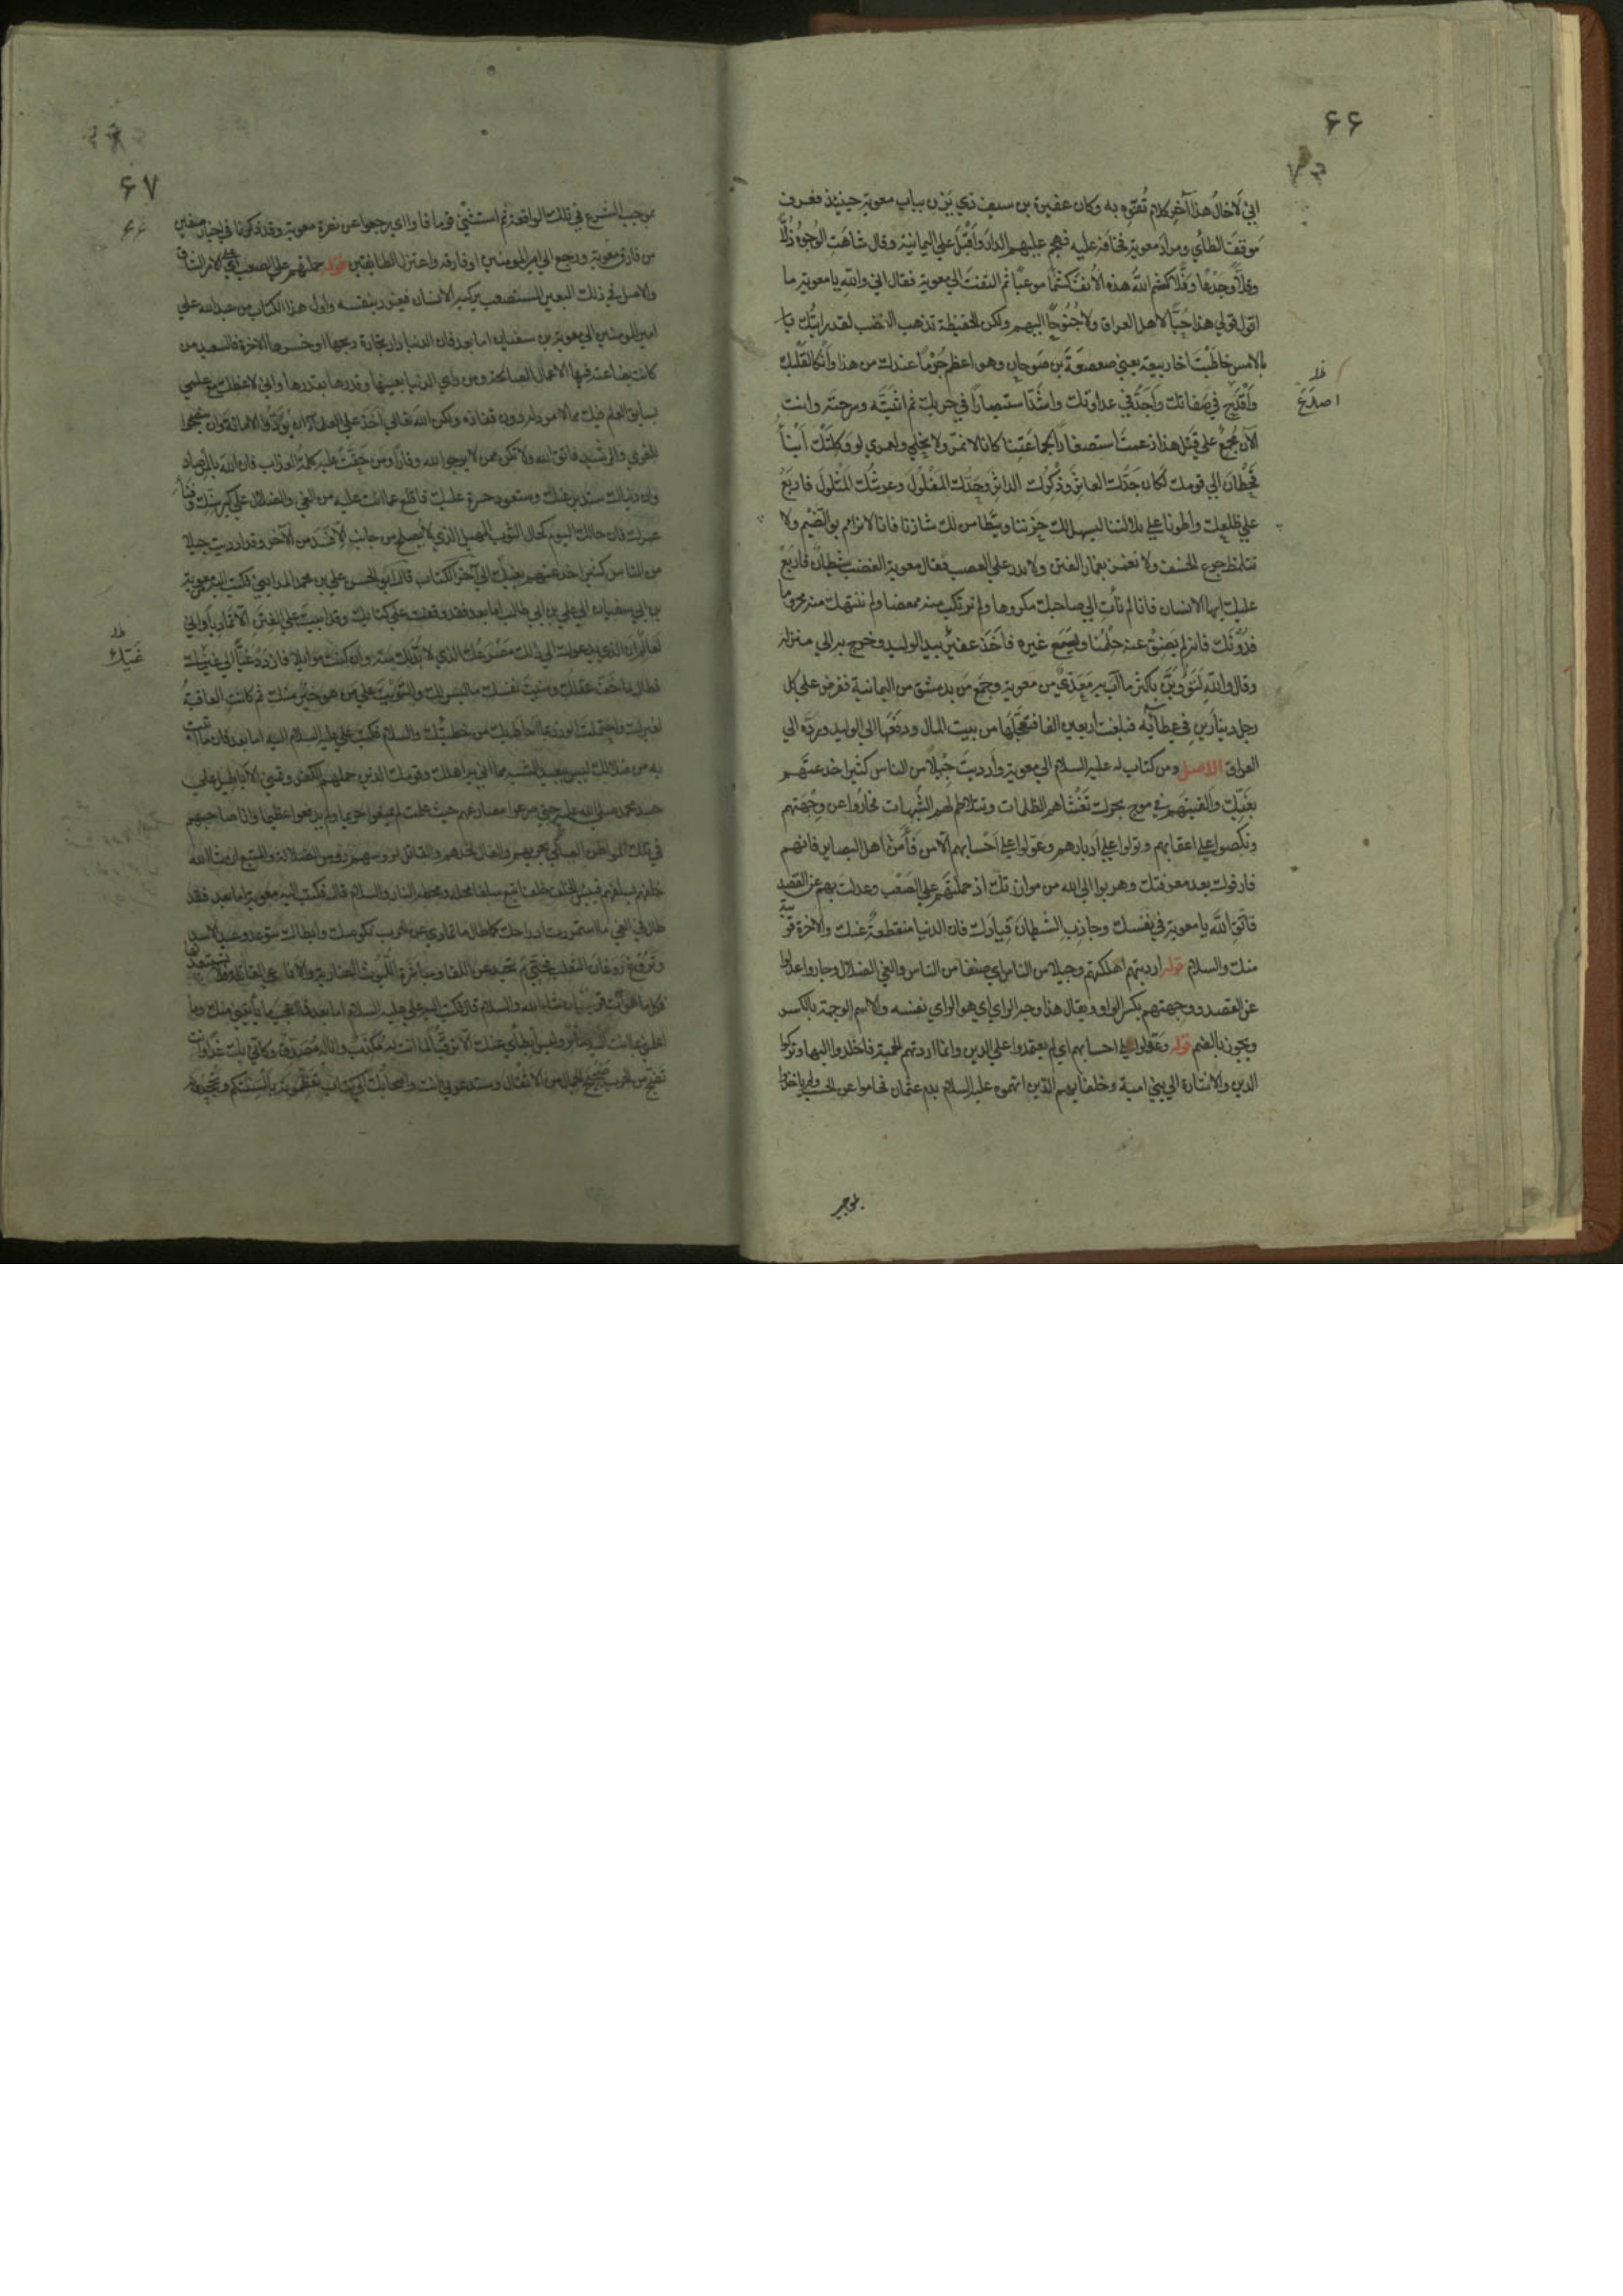 ۶۶
اني لاخال هذا آخر كلام تفوه به وكان عفير بن سيف ذي يزن بباب معوية حينئذ فعرف
موقف الطائي ومراد معوية فخافه عليه فهجم عليهم الدار وأقبل علي اليمانية وقال شاهت الوجوه ذلا
وقلا وجدعا وفلا كشم الله هذه الأنف كشما موعبا ثم التفت الي معوية فقال اني والله يا معوية ما
اقول قولي هذا حبا لاهل العراق ولا جنوحا اليهم ولكن الحفيظة تذهب الغضب لقد رايتك
بالامس خاطبت اخا ربيعة يعني صعصعة بن صوحان وهو اعظم جرما عندك من هذا وأنكا لقلبك
وأقدح في صفاتك وأجد في عداوتك واشد استبصارا في حربك ثم اثبته وسرحته وانت
الآن مجمع علي قتل هذا زعمت استصغارا لجماعتنا كانا لا نمر ولا نحلي ولعمري لو وكلتك أبناأ
قحطان الي قومك لكان جدك العاثر وذكرك الداثر وحدك المفلول وعرشك المثلول فاربع
علي ظلعك واطونا علي بلالتنا ليسهل لك حزننا ويتطامن لك شاردنا فانا لا نرام بوالضيم ولا
نتلمظ جرع الخسف ولا نغمز بغمار الفتن ولا ندر علي العصب فقال معوية الغضب شيطان فاربع
عليك ايها الانسان فانا لم نأت الي صاحبك مكروها ولم نرتكب منه مغضبا ولم ننتهك منه محرما
فدونك فانه لم يضق عنه حلمنا ويسع غيره فأخذ عفير بيد الوليد وخرج به الي منزله
وقال والله لتؤوبن بأكثر ما آب به معدي من معوية وجمع من بدمشق من اليمانية ففرض علي كل
رجل دينارين في عطائه فبلغت اربعين الفا فتعجلها من بيت المال ودفعها الي الوليد ورده الي
العراق الاصل ومن كتاب له عليه السلام الي معوية وأرديت جيلا من الناس كثيرا خدعتهم
بغيك وألقيتهم في موج بحرك تغشاهم الظلمات وتتلاطم بهم الشبهات فجاروا عن وجهتهم
ونكصوا علي اعقابهم وتولوا علي أدبارهم وعولوا علي احسابهم الا من فاء من اهل البصاير فانهم
فارقوك بعد معرفتك وهربوا الي الله من موازرتك اذ حملتهم علي الصعب وعدلت بهم عن القصد
فاتق الله يا معوية في نفسك وجاذب الشيطان قيادك فان الدنيا منقطعة عنك والآخرة قريبة
منك والسلام قوله ارديتهم اهلكتهم وجيلا من الناس اي صنفا من الناس والغي الضلال وجاروا عدلوا
عن القصد ووجهتهم بكسر الواو ويقال هذا وجه الراي اي هو الراي نفسه والاسم الوجهة بالكسر
ويجوز بالضم قوله وعولوا علي احسابهم اي لم يعتمدوا علي الدين وانما اردتهم الحمية فاخلدوا اليها وتركوا
الدين والاشارة الي بني امية وخلفايهم الذين اتهموه عليه السلام بدم عثمان فحاموا عن الحسب ولم ياخذوا
بموجب
ظ
اصلخ
۶۷
بموجب الشرع في تلك الواقعة ثم استثني قوما فاوا اي رجعوا عن نصرة معوية وقد ذكرنا في اخبار صفين
من فارق معوية ورجع الي امير المومنين او فارقه واعتزل الطائفتين قوله حملتهم علي الصعب اي علي الامر الشاق
والاصل في ذلك البعير المستصعب يركبه الانسان فيغرر بنفسه واول هذا الكتاب من عبد الله علي
امير المومنين الي معوية بن سفيان اما بعد فان الدنيا دار تجارة ربحها او خسرها الاخرة فالسعيد من
كانت بضاعته فيها الاعمال الصالحة ومن راي الدنيا بعينها وقدرها بقدرها واني لاعظك مع علمي
بسابق العلم فيك مما لا مرد له دون نفاذه ولكن الله تعالي اخذ علي العلماء ان يؤدوا الامانة وان ينصحوا
الغوي والرشيد فاتق الله ولا تكن ممن لا يرجو لله وقارا ومن حقت عليه كلمة العذاب فان الله بالمرصاد
وان دنياك ستدبر عنك وستعود حسرة عليك فاقلع عما انت عليه من الغي والضلال علي كبر سنك وفناء
عمرك فان حالك اليوم كحال الثوب المهيل الذي لا يصلح من جانب الا فسد من الآخر وقد ارديت جيلا
من الناس كثيرا خدعتهم بغيك الي آخر الكتاب قال ابو الحسن علي بن محمد المدايني فكتب اليه معوية
بن ابي سفيان الي علي بن ابي طالب اما بعد فقد وقفت علي كتابك وقد ابيت علي الفتن الا تماديا واني
لعالم ان الذي يدعوك الي ذلك مصرعك الذي لا بد لك منه وان كنت موايلا فازدد غيا الي غيك
فطال ما خف عقلك ومنيت نفسك ما ليس لك والتويت علي من هو خير منك ثم كانت العاقبة
لغيرك واحتملت الوزر بما احاط بك من خطيئتك والسلام فكتب علي عليه السلام اليه اما بعد فان ما اتيت
به من ضلالك ليس ببعيد الشبه مما اتي به اهلك وقومك الذين حملهم الكفر وتمني الاباطيل علي
حسد محمد صلي الله عليه حتي صرعوا مصارعهم حيث علمت لم يمنعوا حريما ولم يدفعوا عظيما وانا صاحبهم
في تلك المواطن الصالي بحربهم والفال لحدهم والقاتل لرؤسهم رؤس الضلالة والمتبع ان شاء الله
خلفهم بسلفهم فبيس الخلف خلف اتبع سلفا محله ومحطه النار والسلام قال فكتب اليه معوية اما بعد فقد
طال في الغي ما استمررت ادراجك كما طال ما تمادي عن الحرب نكوصك وابطاك تتوعد وعيد الاسد
وتروغ روغان الثعلب فحتي م تحيد عن اللقاء ومباشرة الليوث الضارية والافاعي القاتلة ولا تستبعدنها
فكل ما هو آت قريب ان شاء الله والسلام قال فكتب اليه علي عليه السلام اما بعد فما اعجب ما يأتيني منك وما
اعلمني بما انت اليه صائر وليس ابطائي عنك الا ترقبا لما انت له مكذب وانا له مصدق وكاني بك غدا وانت
تضج من الحرب ضجيج الجمال من الاثقال وستدعوني انت واصحابك الي كتاب تعظمونه بألسنتكم وتجحدونه
ظ
غيك